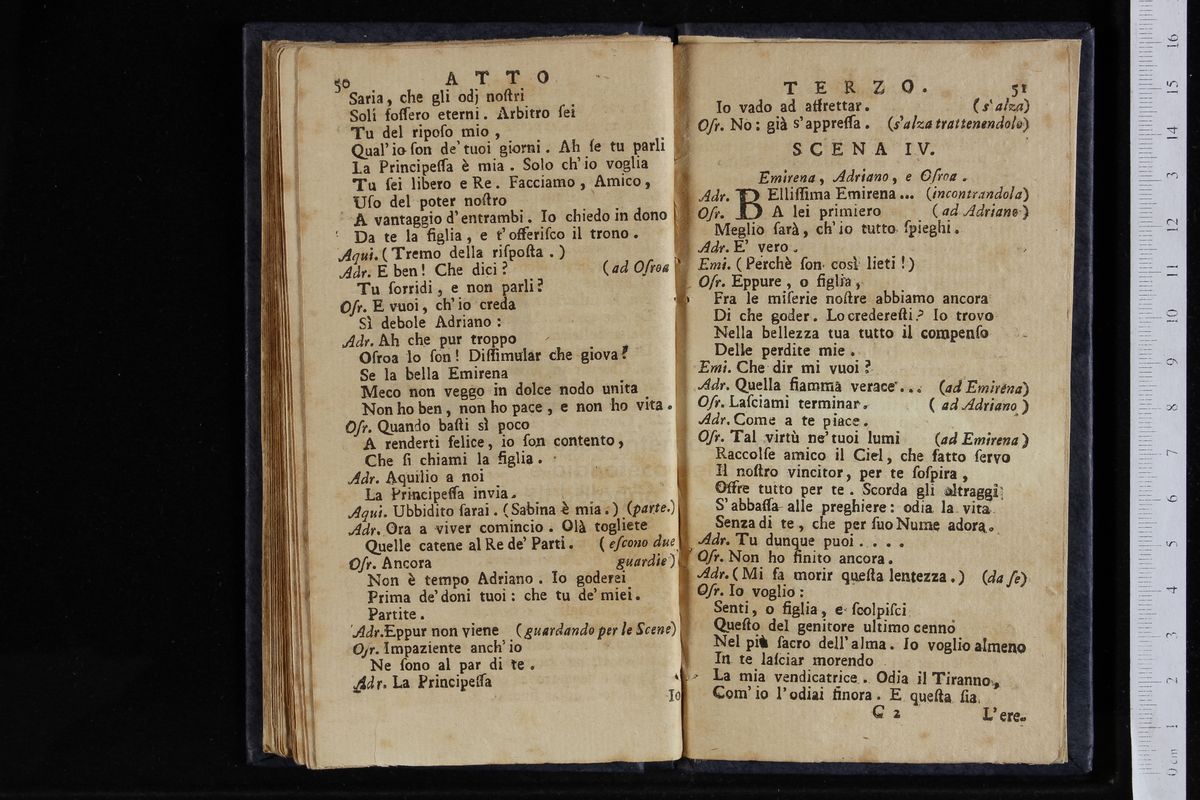 50 ATTO
Saria, che gli odj noſtri
Soli foſſero eterni. Arbitro ſei
Tu del ripoſo mio,
Qual'io ſon de'tuoi giorni. Ah ſe tu parli
La Principeſſa è mia. Solo ch'io voglia
Tu ſei libero e Re. Facciamo, Amico,
Uſo del poter noſtro
A vantaggio d'entrambi. Io chiedo in dono
Da te la figlia, e t'offeriſco il trono.
Aqui. (Tremo della riſpoſta.)
Adr. E ben! Che dici? (ad Oſroa
Tu ſorridi, e non parli?
Oſr. E vuoi, ch'io creda
Sì debole Adriano:
Adr. Ah che pur troppo
Oſroa lo ſon! Diſſimular che giova?
Se la bella Emirena
Meco non veggo in dolce nodo unita
Non ho ben, non ho pace, e non ho vita.
Oſr. Quando baſti sì poco
A renderti felice, io ſon contento,
Che ſi chiami la figlia.
Adr. Aquilio a noi
La Principeſſa invia.
Aqui. Ubbidito ſarai. (Sabina è mia.) (parte.)
Adr. Ora a viver comincio. Olà togliete
Quelle catene al Re de' Parti. (eſcono due
Oſr. Ancora guardie)
Non è tempo Adriano. Io goderei
Prima de'doni tuoi: che tu de'miei.
Partite.
Adr. Eppur non viene (guardando per le Scene)
Oſr. Impaziente anch'io
Ne ſono al par di te.
Adr. La Principeſſa
Io
TERZO. 51
Io vado ad affrettar. (s'alza)
Oſr. No: già s'appreſſa. (s'alza trattenendolo)
SCENA IV.
Emirena, Adriano, e Oſroa.
Adr. BElliſſima Emirena... (incontrandola)
Oſr. A lei primiero (ad Adriano)
Meglio ſarà, ch'io tutto ſpieghi.
Adr. E' vero.
Emi. (Perchè ſon così lieti!)
Oſr. Eppure, o figlia,
Fra le miſerie noſtre abbiamo ancora
Di che goder. Lo crederеſti? Io trovo
Nella bellezza tua tutto il compenſo
Delle perdite mie.
Emi. Che dir mi vuoi?
Adr. Quella fiamma verace... (ad Emirena)
Oſr. Laſciami terminar. (ad Adriano)
Adr. Come a te piace.
Oſr. Tal virtù ne'tuoi lumi (ad Emirena)
Raccolſe amico il Ciel, che fatto ſervo
Il noſtro vincitor, per te ſoſpira,
Offre tutto per te. Scorda gli oltraggi
S'abbaſſa alle preghiere: odia la vita
Senza di te, che per ſuo Nume adora.
Adr. Tu dunque puoi....
Oſr. Non ho finito ancora.
Adr. (Mi fa morir queſta lentezza.) (da ſe)
Oſr. Io voglio:
Senti, o figlia, e ſcolpiſci
Queſto del genitore ultimo cenno
Nel più ſacro dell'alma. Io voglio almeno
In te laſciar morendo
La mia vendicatrice. Odia il Tiranno,
Com'io l'odiai finora. E queſta ſia
C 2 L'ere-
0 cm 1 2 3 4 5 6 7 8 9 10 11 12 13 14 15 16